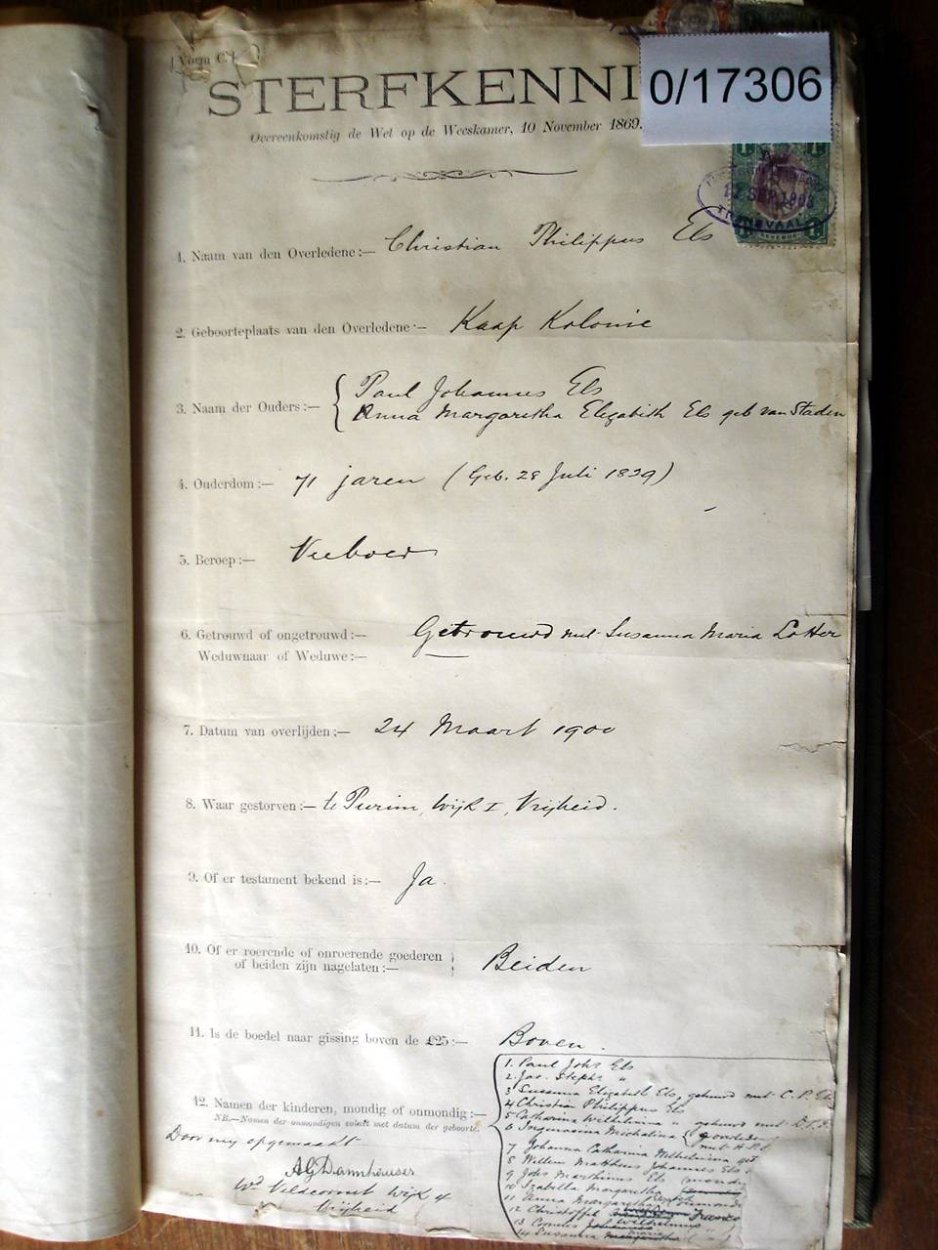 [Vorm C.]
STERFKENNI
0/17306
Overeenkomstig de Wet op de Weeskamer, 10 November 1869.
1. Naam van den Overledene:— Christian Philippus Els
2. Geboorteplaats van den Overledene:— Kaap Kolonie
3. Naam der Ouders:— Paul Johannes Els
Anna Margaretha Elizabeth Els geb van Staden
4. Ouderdom:— 71 jaren (Geb. 28 Juli 1829)
5. Beroep:— Veeboer
6. Getrouwd of ongetrouwd:— Getrouwd met Susanna Maria Lotter
Weduwnaar of Weduwe:—
7. Datum van overlijden:— 24 Maart 1900
8. Waar gestorven:— te Purim, Wijk I, Vrijheid.
9. Of er testament bekend is:— Ja.
10. Of er roerende of onroerende goederen
of beiden zijn nagelaten:— Beiden
11. Is de boedel naar gissing boven de £25:— Boven.
12. Namen der kinderen, mondig of onmondig:—
NB.—Namen der onmondigen voluit met datum der geboorte.
1. Paul Johs Els
2. Jac. Stephs "
3 Susanna Elizabeth Els, gehuwd met C. P. Els
4 Christian Philippus Els
5 Catharina Wilhelmina " gehuwd met
6 Michalina overleden
7 Johanna Catharina Wilhelmina
8 Willem Mattheus Johannes Els
9 Johs Marthinus Els
10 Izabella Margaretha
11 Anna Margaretha
12 Christoffel
13 Cornelis Wilhelmus
14 Susanna
Door my opgemaakt
AG Dannhauser
Wd Veldcornet Wijk 4
Vrijheid